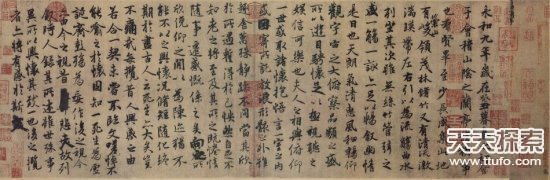 永和九年歲在癸丑暮春之初會
于會稽山陰之蘭亭脩稧事
也群賢畢至少長咸集此地
有崇山峻領茂林脩竹又有清流激
湍暎帶左右引以為流觴曲水
列坐其次雖無絲竹管弦之
盛一觴一詠亦足以暢敘幽情
是日也天朗氣清惠風和暢仰
觀宇宙之大俯察品類之盛
所以遊目騁懷足以極視聽之
娛信可樂也夫人之相與俯仰
一世或取諸懷抱悟言一室之內
或因寄所託放浪形骸之外雖
趣舍萬殊靜躁不同當其欣
於所遇蹔得於己怏然自足不
知老之將至及其所之既惓情
隨事遷感慨係之矣向之所
欣俛仰之閒以為陳迹猶不
能不以之興懷況脩短隨化終
期於盡古人云死生亦大矣豈
不痛哉每攬昔人興感之由
若合一契未嘗不臨文嗟悼不
能喻之於懷固知一死生為虛
誕齊彭殤為妄作後之視今
亦由今之視昔悲夫故列
敘時人錄其所述雖世殊事
異所以興懷其致一也後之攬
者亦將有感於斯文
天天探索
www.ttufo.com